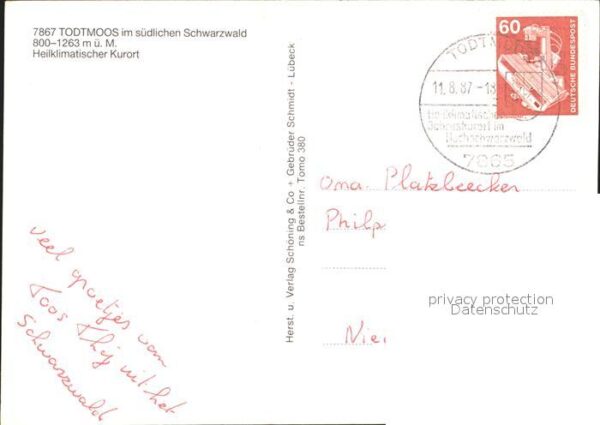 7867 TODTMOOS im südlichen Schwarzwald
800–1263 m ü. M.
Heilklimatischer Kurort
60
DEUTSCHE BUNDESPOST
TODTMOOS
11.8.87-18
Heilklimatischer
Hochschwarzwald
7865
Herst. u. Verlag Schöning & Co + Gebrüder Schmidt - Lübeck
ns Bestellnr. Tomo 380
Oma Platzbeecker
Philp
Nie
privacy protection
Datenschutz
veel groetjes van
Toos Thij uit het
Schwarzwald